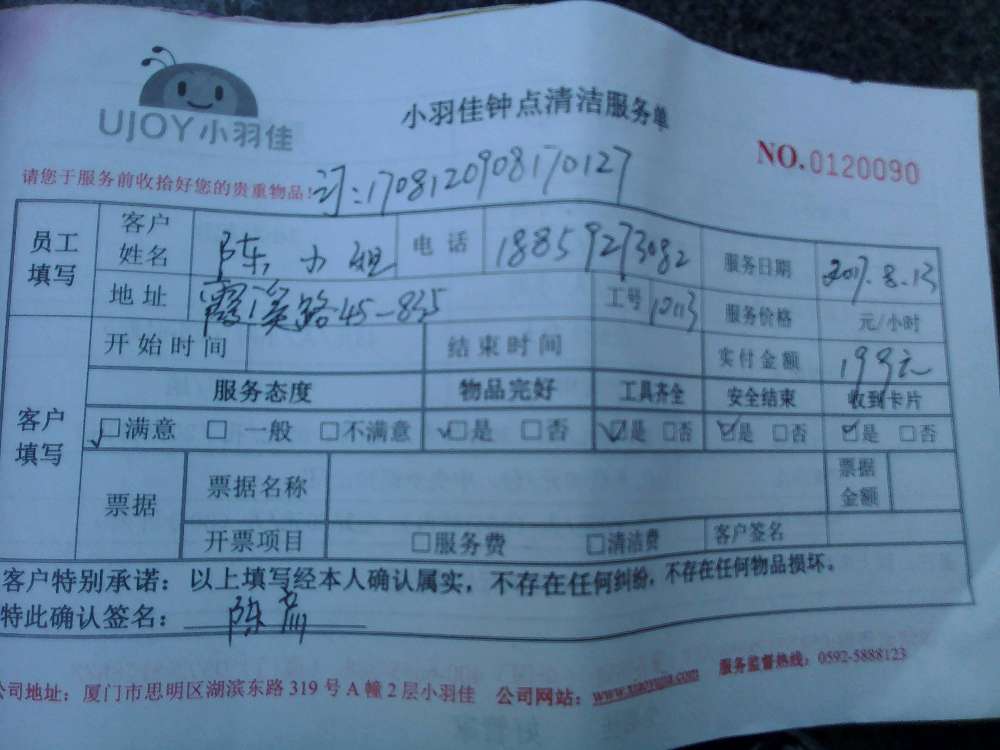 UJOY小羽佳
小羽佳钟点清洁服务单
NO.0120090
请您于服务前收拾好您的贵重物品!
订:1708120908170127
员工填写 客户姓名 陈小姐 电话 18859273082 服务日期 2017.8.13
地址 霞溪路45-835 工号 服务价格 元/小时
开始时间 结束时间 实付金额 199元
客户填写 服务态度 物品完好 工具齐全 安全结束 收到卡片
☑满意 □一般 □不满意 ☑是 □否 ☑是 □否 ☑是 □否 ☑是 □否
票据 票据名称 票据金额
开票项目 □服务费 □清洁费 客户签名
客户特别承诺:以上填写经本人确认属实,不存在任何纠纷,不存在任何物品损坏。
特此确认签名:陈
公司地址:厦门市思明区湖滨东路319号A幢2层小羽佳 公司网站:www.xiaoyujia.com 服务监督热线:0592-5888123